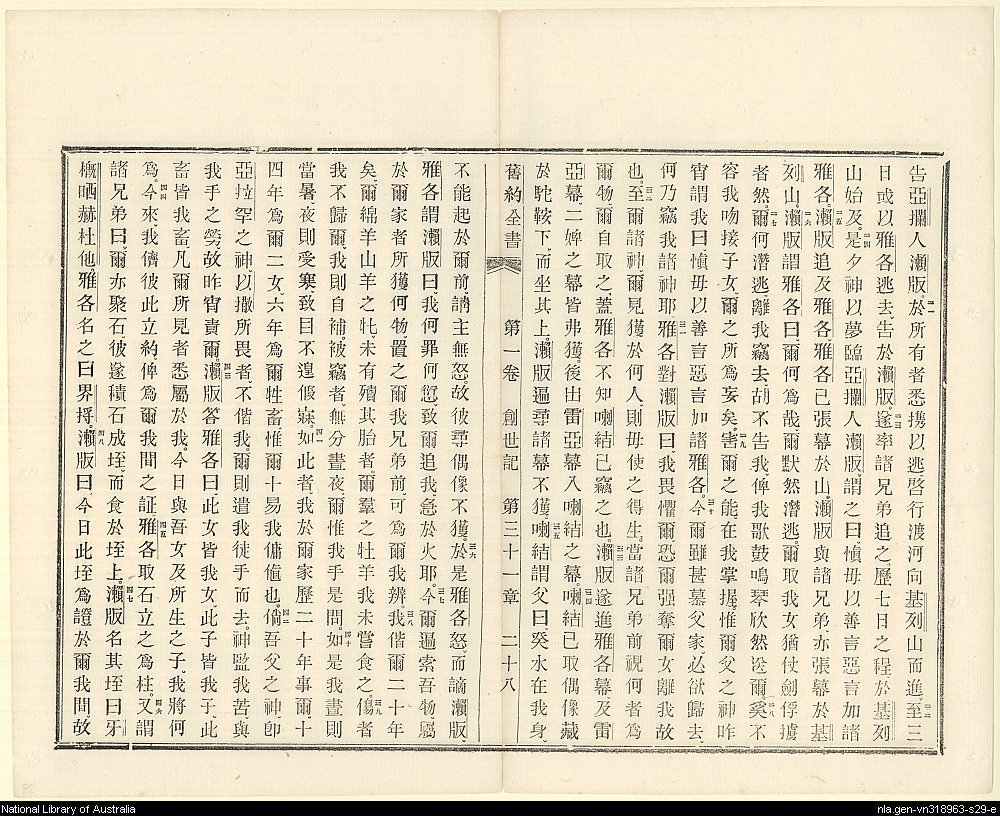 告亞攔人瀨版、二一於所有者悉携以逃啓行渡河向基列山而進、二二至三
日或以雅各逃去、告於瀨版、二三遂率諸兄弟追之、歷七日之程於基列
山始及、二四是夕神以夢臨亞攔人瀨版、謂之曰、愼毋以善言惡言加諸
雅各。二五瀨版追及雅各、雅各已張幕於山、瀨版與諸兄弟亦張幕於基
列山。二六瀨版謂雅各曰、爾何爲哉、爾默然潛逃、爾取我女猶仗劍俘擄
者然。二七爾何潛逃離我竊去、胡不告我、俾我歌鼓鳴琴欣然送爾、二八奚不
容我吻接子女、爾之所爲妄矣。二九害爾之能在我掌握、惟爾父之神昨
宵謂我曰、愼毋以善言惡言加諸雅各。三十今爾雖甚慕父家、必欲歸去、
何乃竊我諸神耶。三一雅各對瀨版曰、我畏懼爾、恐爾强奪爾女離我故
也。三二至爾諸神、爾見獲於何人、則毋使之得生。當諸兄弟前、視何者爲
爾物、爾自取之、蓋雅各不知喇結已竊之也。三三瀨版遂進雅各幕及雷
亞幕、二婢之幕、皆弗獲。後出雷亞幕入喇結之幕。三四喇結已取偶像藏
於駝鞍下、而坐其上。瀨版遍尋諸幕不獲。三五喇結謂父曰、癸水在我身、
舊約全書 第一卷 創世記 第三十一章 二十八
不能起於爾前、請主無怒。故彼尋偶像不獲。三六於是雅各怒、而謫瀨版、
雅各謂瀨版曰、我何罪何愆、致爾追我、急於火耶。三七今爾遍索吾物、屬
於爾家者所獲何物、置之爾我兄弟前、可爲爾我辨。三八我偕爾二十年
矣、爾綿羊山羊之牝未有殰其胎者、爾羣之牡羊我未嘗食之。三九傷者
我不歸爾、我則自補、被竊者無分晝夜、爾惟我手是問。四十如是我晝則
當暑、夜則受寒、致目不遑假寐。四一如此者、我於爾家歷二十年、事爾十
四年爲爾二女、六年爲爾牲畜、惟爾十易我傭値也。四二倘吾父之神、卽
亞拉罕之神、以撒所畏者、不偕我、爾則遣我徒手而去、神監我苦、與
我手之勞、故昨宵責爾。四三瀨版答雅各曰、此女皆我女、此子皆我子、此
畜皆我畜、凡爾所見者悉屬於我、今日與吾女及所生之子、我將何
爲。四四今來、我儕彼此立約、俾爲爾我間之証。四五雅各取石立之爲柱。四六又謂
諸兄弟曰、爾亦聚石、彼遂積石成垤、而食於垤上。四七瀨版名其垤曰牙
橛晒赫杜他、雅各名之曰界捋。四八瀨版曰、今日此垤爲證於爾我間、故
National Library of Australia
nla.gen-vn318963-s29-e